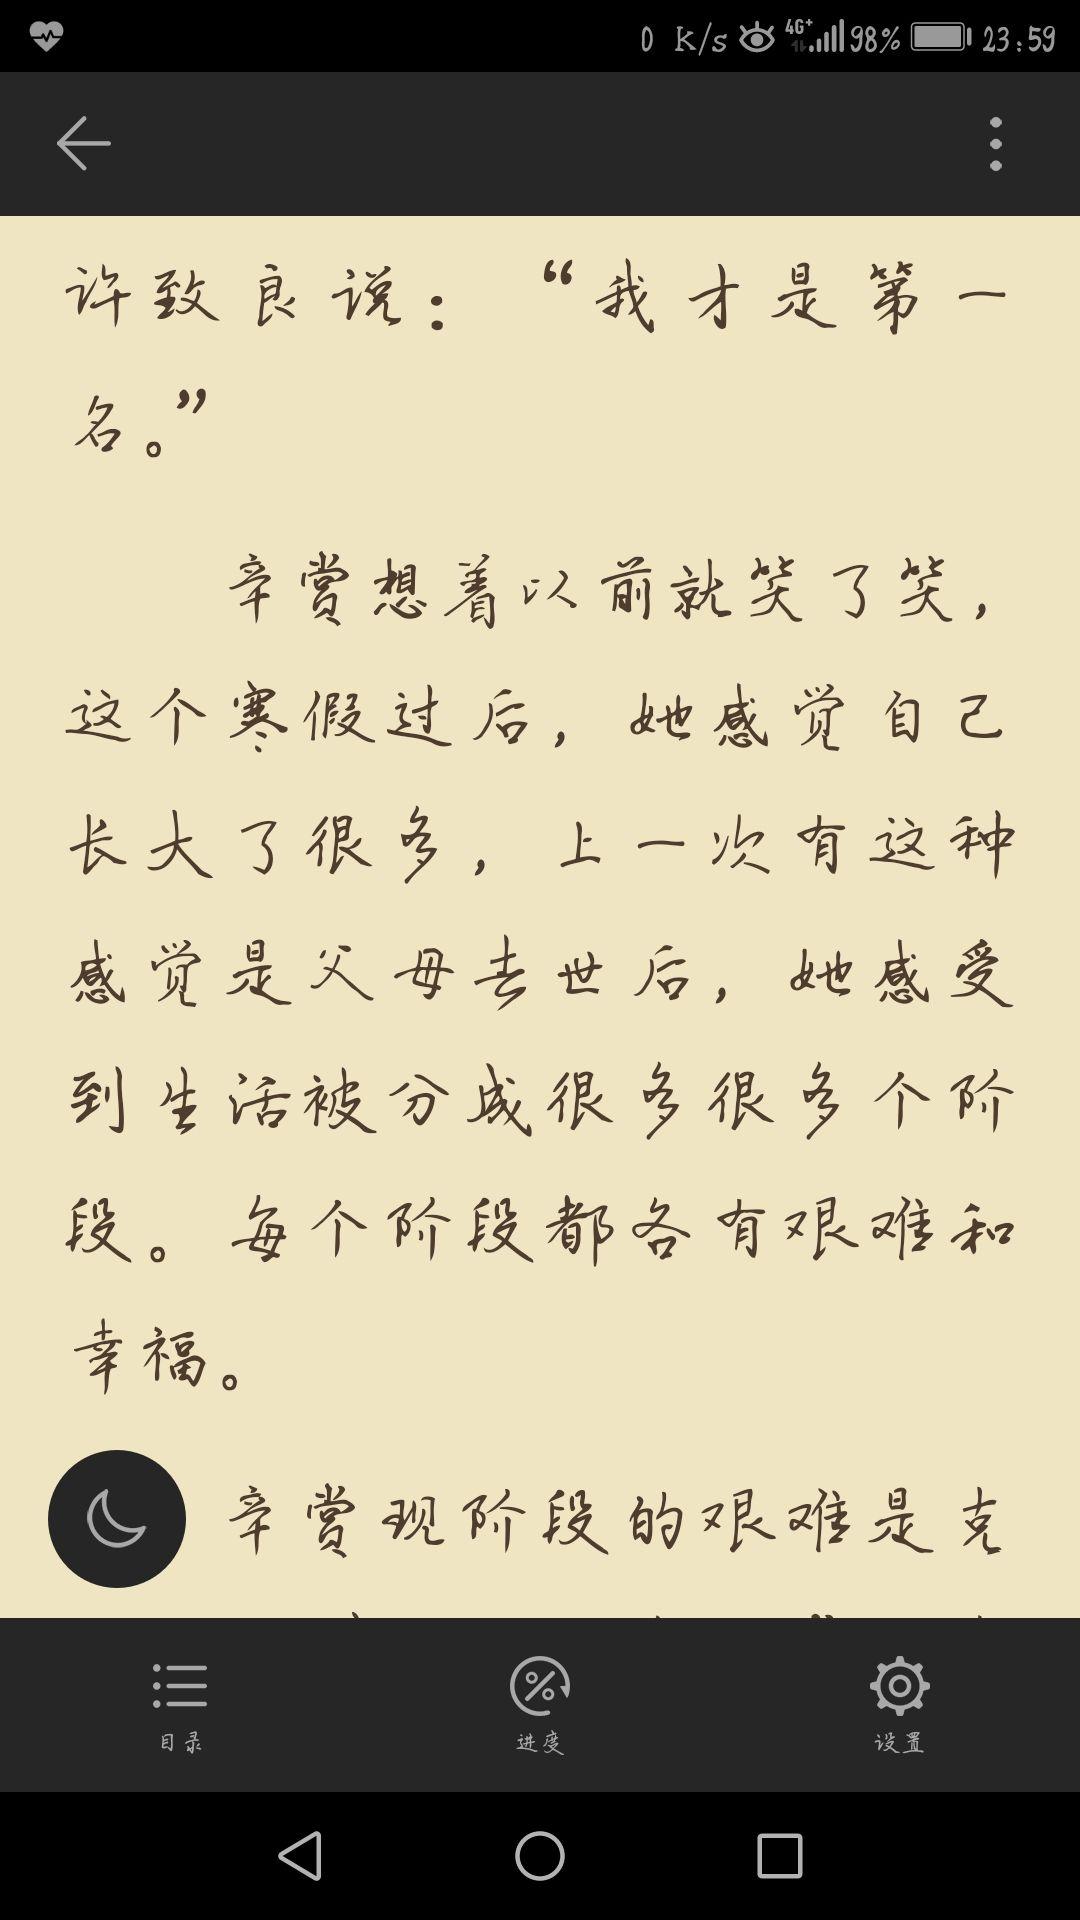 0 k/s 4G+ 98% 23:59
许致良说：“我才是第一
名。”
辛赏想着以前就笑了笑，
这个寒假过后，她感觉自己
长大了很多，上一次有这种
感觉是父母去世后，她感受
到生活被分成很多很多个阶
段。每个阶段都各有艰难和
幸福。
辛赏现阶段的艰难是克
目录 进度 设置